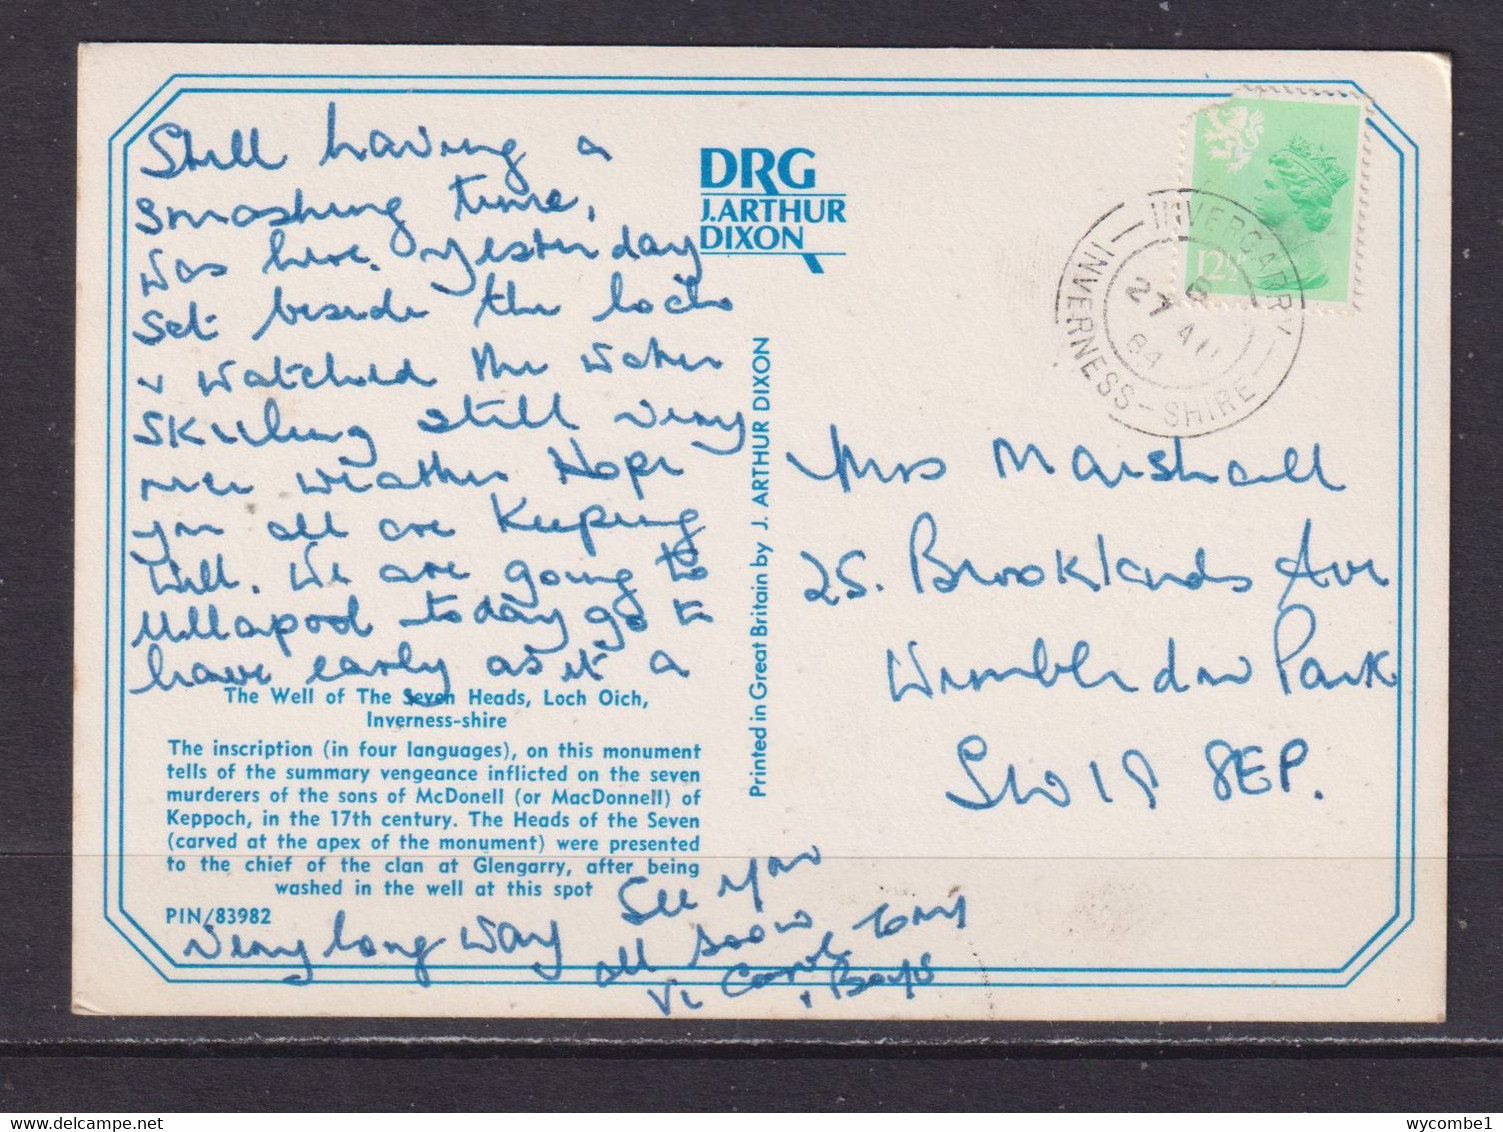 Still having a
smashing time.
Was here yesterday
Set beside the lochs
& watched the water
Skiing still very
nice weather Hope
you all are Keeping
well. We are going to
Ullapool today go to
have early as it a
very long way
See you
all soon
Vi Carol Tony
& Boys
DRG
J.ARTHUR
DIXON
The Well of The Seven Heads, Loch Oich,
Inverness-shire
The inscription (in four languages), on this monument
tells of the summary vengeance inflicted on the seven
murderers of the sons of McDonell (or MacDonnell) of
Keppoch, in the 17th century. The Heads of the Seven
(carved at the apex of the monument) were presented
to the chief of the clan at Glengarry, after being
washed in the well at this spot
PIN/83982
Printed in Great Britain by J. ARTHUR DIXON
12½P
INVERGARRY
INVERNESS-SHIRE
27 AU
84
Mrs Marshall
25. Brooklands Ave
Wimbledon Park
SW18 8EP.
wycombe1